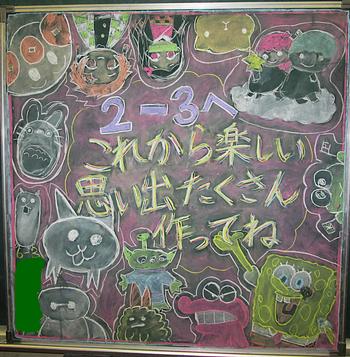 2-3へ
これから楽しい
思い出たくさん
作ってね